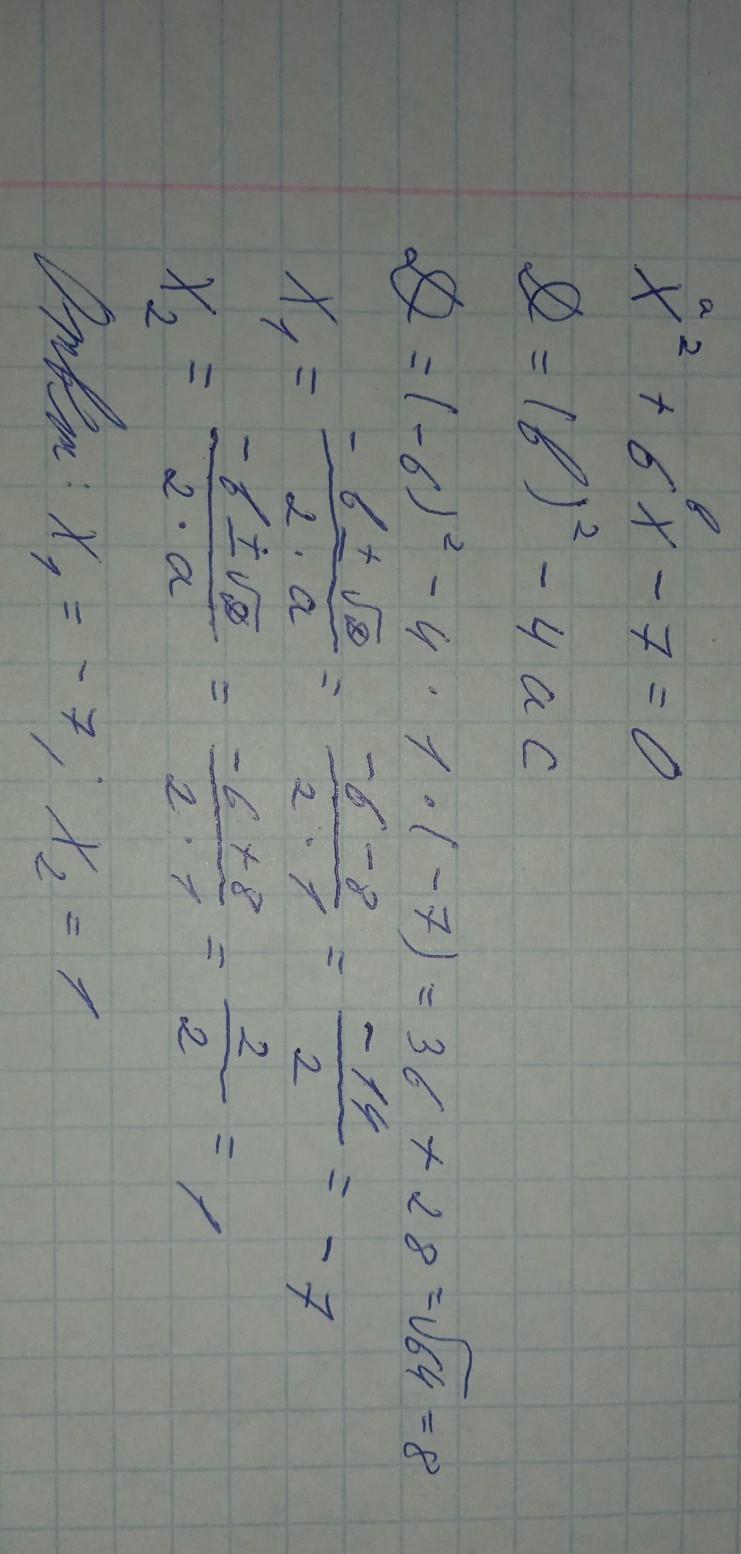 x² + 6x - 7 = 0
a b
D = (b)² - 4ac
D = (-6)² - 4 · 1 · (-7) = 36 + 28 = √64 = 8
x₁ = (-b + √D)/(2 · a) = (-6 - 8)/(2 · 1) = -14/2 = -7
x₂ = (-b ± √D)/(2 · a) = (-6 + 8)/(2 · 1) = 2/2 = 1
Ответ: x₁ = -7; x₂ = 1